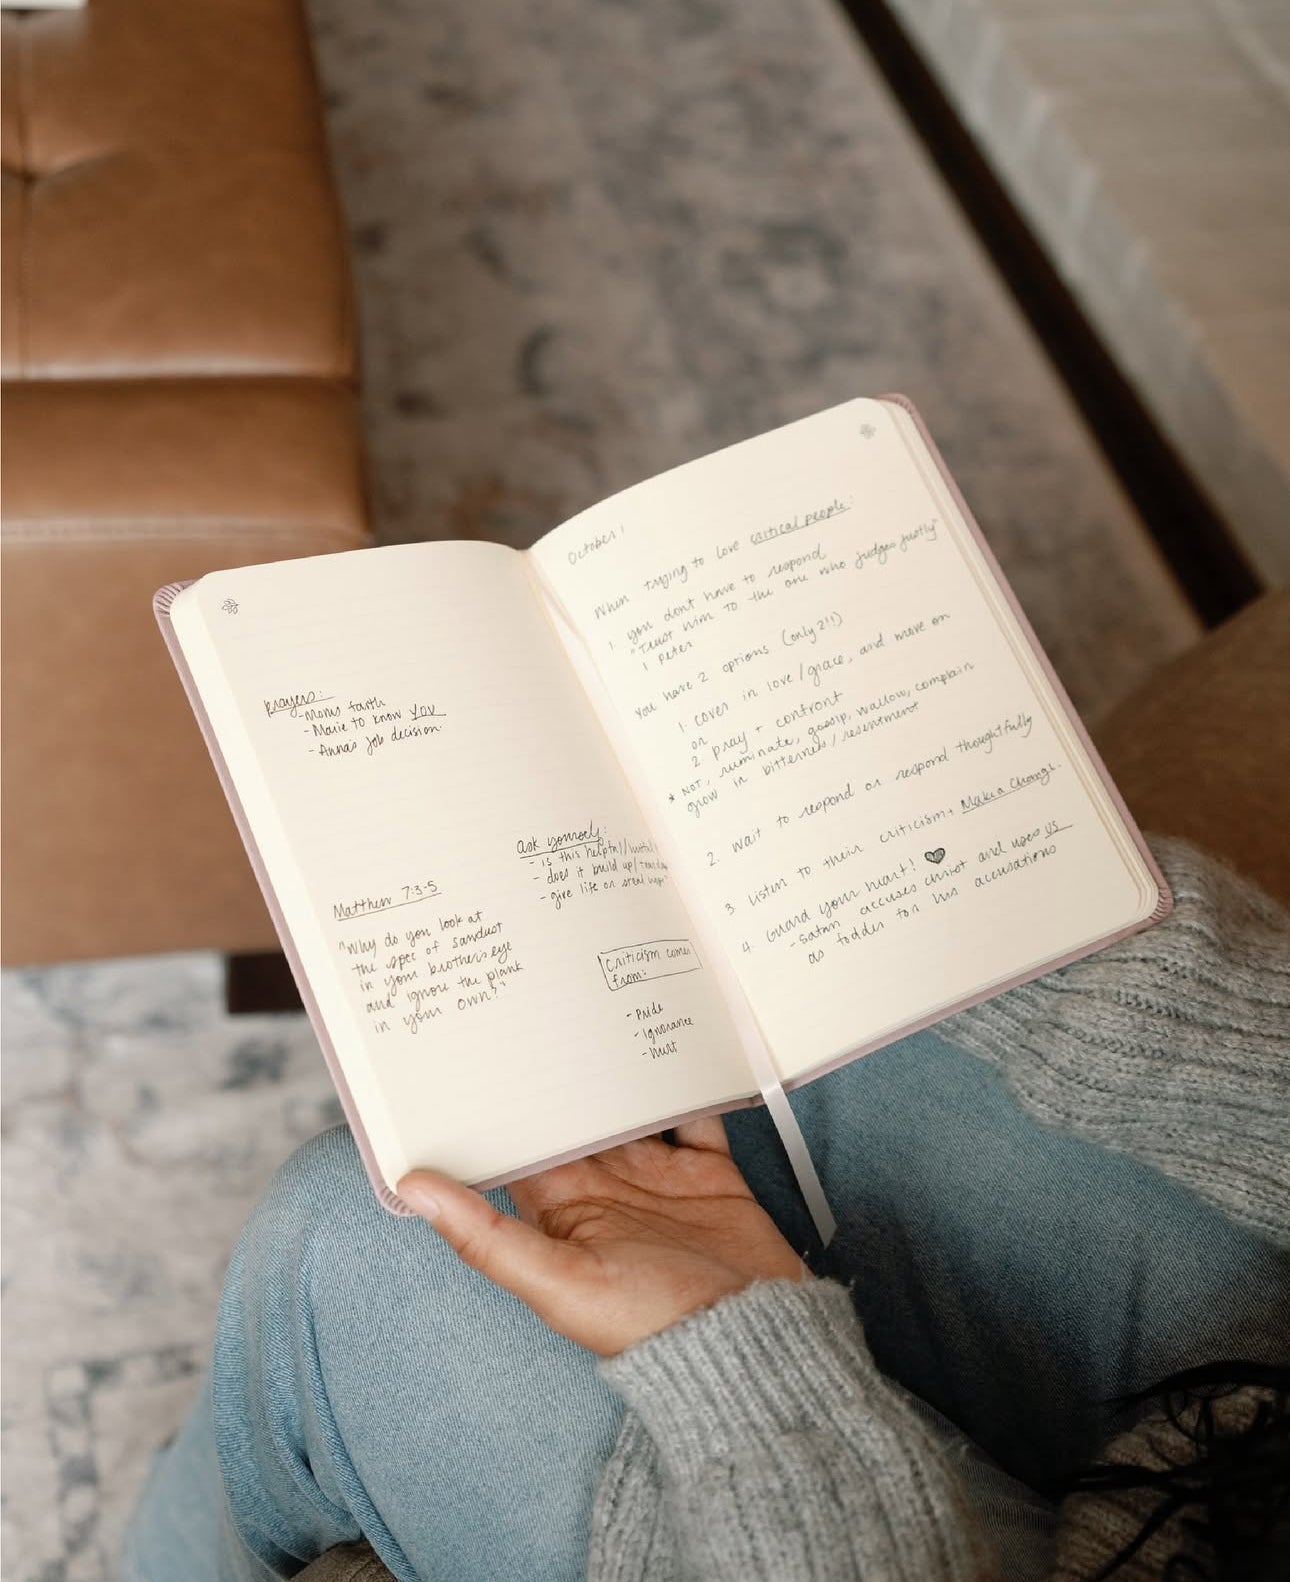 prayers:
- Moms faith
- Marie to know you
- Anna's job decision
ask yourself:
- is this helpful/
- does it build up/
- give life or
Matthew 7:3-5
"Why do you look at
the spec of sawdust
in your brothers eye
and ignore the plank
in your own?"
Criticism comes
from:
- Pride
- Ignorance
- hurt
October 1
When trying to love critical people:
1. you dont have to respond
"Trust Him to the one who judges justly"
1 Peter
You have 2 options (only 2!!)
1 cover in love/grace, and move on
or
2 pray + confront
* NOT, ruminate, gossip, wallow, complain
grow in bitterness/resentment
2. wait to respond or respond thoughtfully
3 listen to their criticism + Make a Change.
4. Guard your heart!
- Satan accuses christ and uses us
as fodder for his accusations